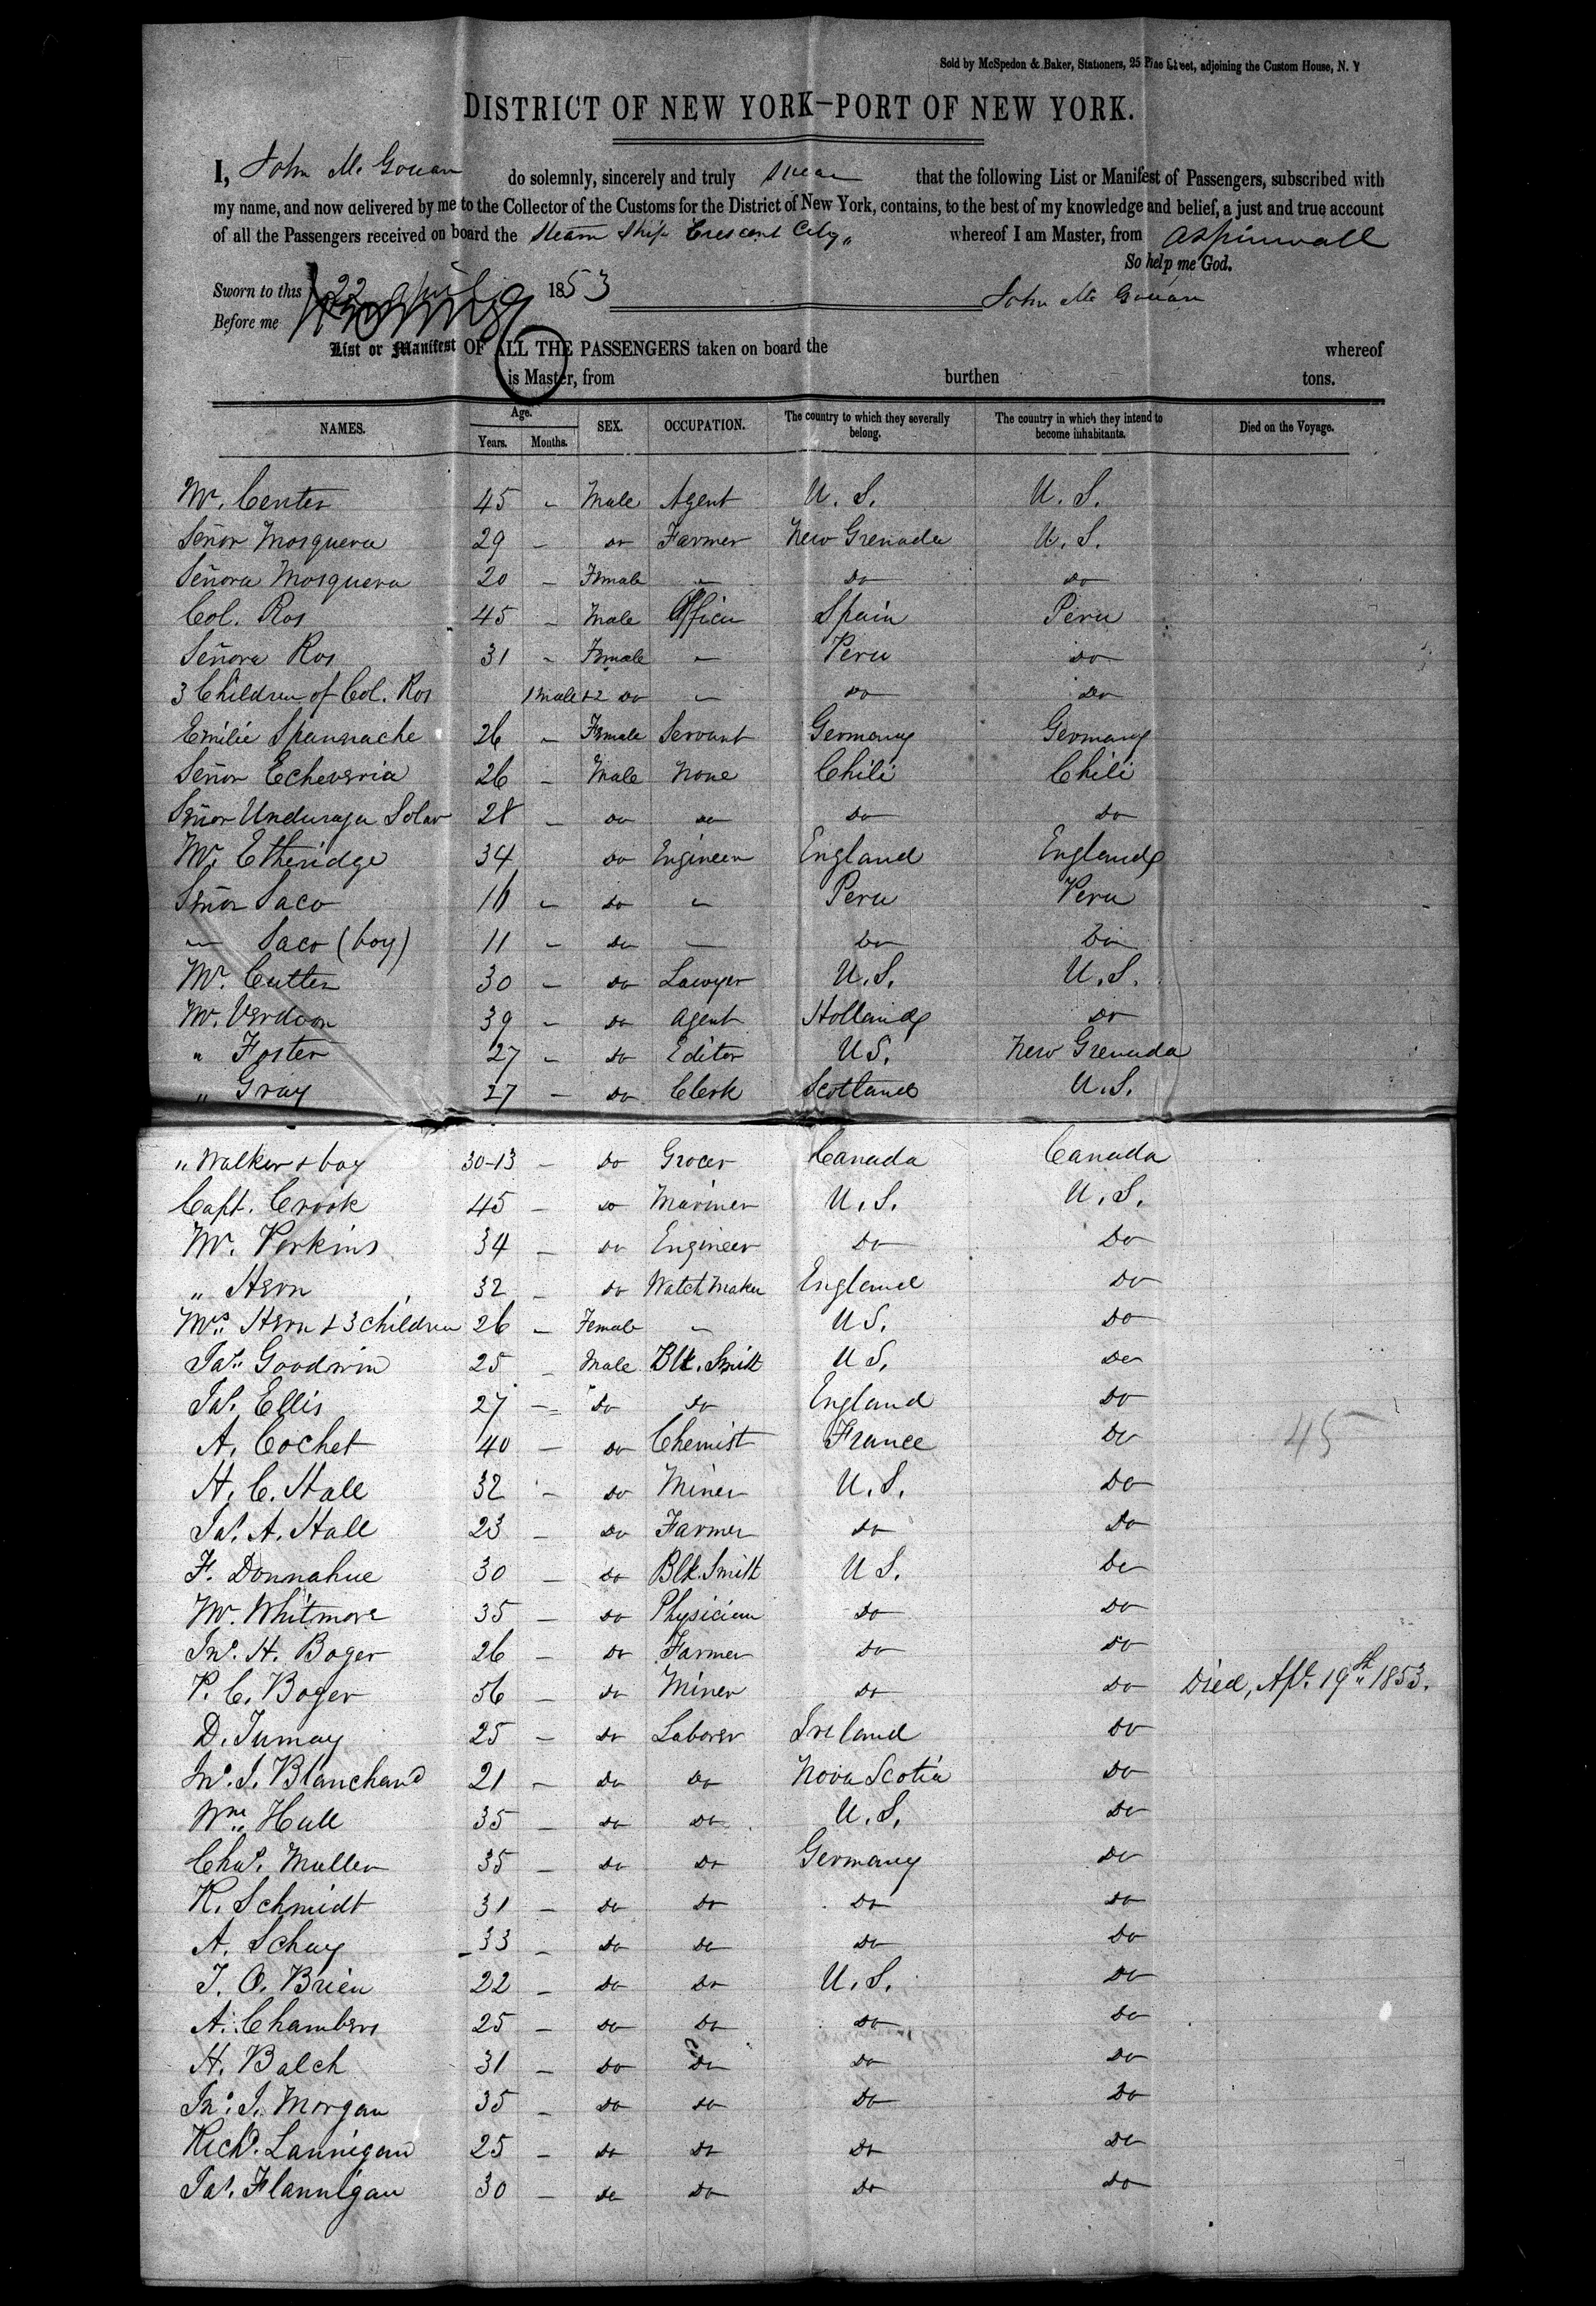 Sold by McSpedon & Baker, Stationers, 25 Pine Street, adjoining the Custom House, N. Y
DISTRICT OF NEW YORK—PORT OF NEW YORK.
I, John Mc Gowan do solemnly, sincerely and truly swear that the following List or Manifest of Passengers, subscribed with
my name, and now delivered by me to the Collector of the Customs for the District of New York, contains, to the best of my knowledge and belief, a just and true account
of all the Passengers received on board the Steam Ship Crescent City „ whereof I am Master, from Aspinwall
So help me God.
Sworn to this 22 April 1853 John Mc Gowan
Before me
List or Manifest OF ALL THE PASSENGERS taken on board the whereof
is Master, from burthen tons.
NAMES. Age. Years. Months. SEX. OCCUPATION. The country to which they severally belong. The country in which they intend to become inhabitants. Died on the Voyage.
Mr. Center 45 - Male Agent U. S. U. S.
Señor Mosquera 29 - Do Farmer New Grenada U. S.
Señora Mosquera 20 - Female - Do Do
Col. Ros 45 - Male Officer Spain Peru
Señora Ros 31 - Female - Peru Do
3 Children of Col. Ros 1 Male & 2 Do - Do Do
Emilie Spannache 26 - Female Servant Germany Germany
Señor Echeveria 26 - Male None Chili Chili
Señor Unduraga Solar 28 - Do Do Do Do
Mr. Etheridge 34 Do Engineer England England
Señor Saco 16 - Do - Peru Peru
— Saco (boy) 11 - Do — Do Do
Mr. Cutter 30 - Do Lawyer U.S. U.S.
Mr. Verdoon 39 - Do Agent Holland Do
" Foster 27 - Do Editor U S. New Grenada
„ Gray 27 - Do Clerk Scotland U.S.
„ Walker & boy 30-13 - Do Grocer Canada Canada
Capt. Crook 45 - Do Mariner U.S. U.S.
Mr. Perkins 34 - Do Engineer Do Do
„ Hern 32 - Do Watch Maker England Do
Mrs. Hern & 3 children 26 - Female - U S. Do
Jas. Goodwin 25 - Male Blk. Smith U S. Do
Jas. Ellis 27 - Do Do England Do
A. Cochet 40 - Do Chemist France Do 45
H. C. Hall 32 - Do Miner U.S. Do
Jas. A. Hall 23 - Do Farmer Do Do
F. Donnahue 30 - Do Blk. Smith U S. Do
Mr. Whitmore 35 - Do Physician Do Do
Jno. H. Boger 26 - Do Farmer Do Do
P. C. Boger 56 - Do Miner Do Do Died, Apl. 19th 1853.
D. Tumay 25 - Do Laborer Ireland Do
Jno. J. Blanchard 21 - Do Do Nova Scotia Do
Wm. Hall 35 - Do Do U. S. Do
Chas. Muller 35 - Do Do Germany Do
K. Schmidt 31 - Do Do Do Do
A. Schay 33 - Do Do Do Do
J. O. Brien 22 - Do Do U.S. Do
A. Chambers 25 - Do Do Do Do
H. Balch 31 - Do Do Do Do
Jno. J. Morgan 35 - Do Do Do Do
Richd. Lannigan 25 - Do Do Do Do
Jas. Flannigan 30 - Do Do Do Do